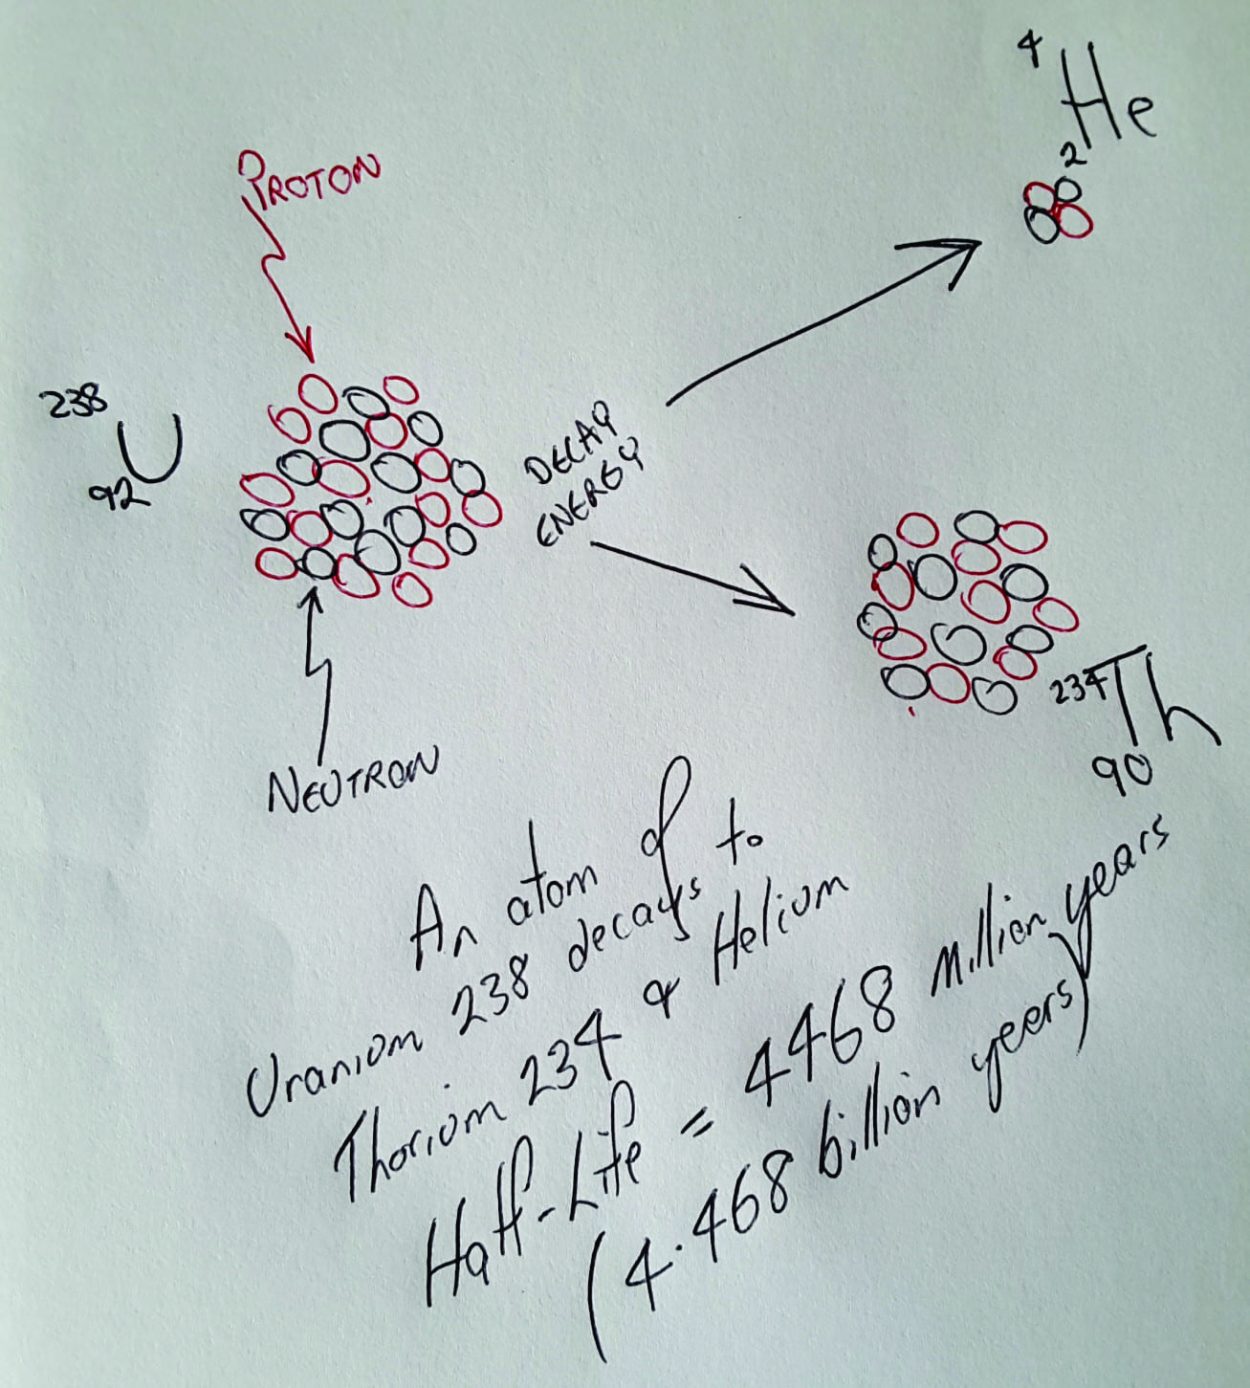 PROTON
238
U
92
NEUTRON
DECAY
ENERGY
4
He
2
234
Th
90
An atom of
Uranium 238 decays to
Thorium 234 & Helium
Half-Life = 4468 million years
(4.468 billion years)